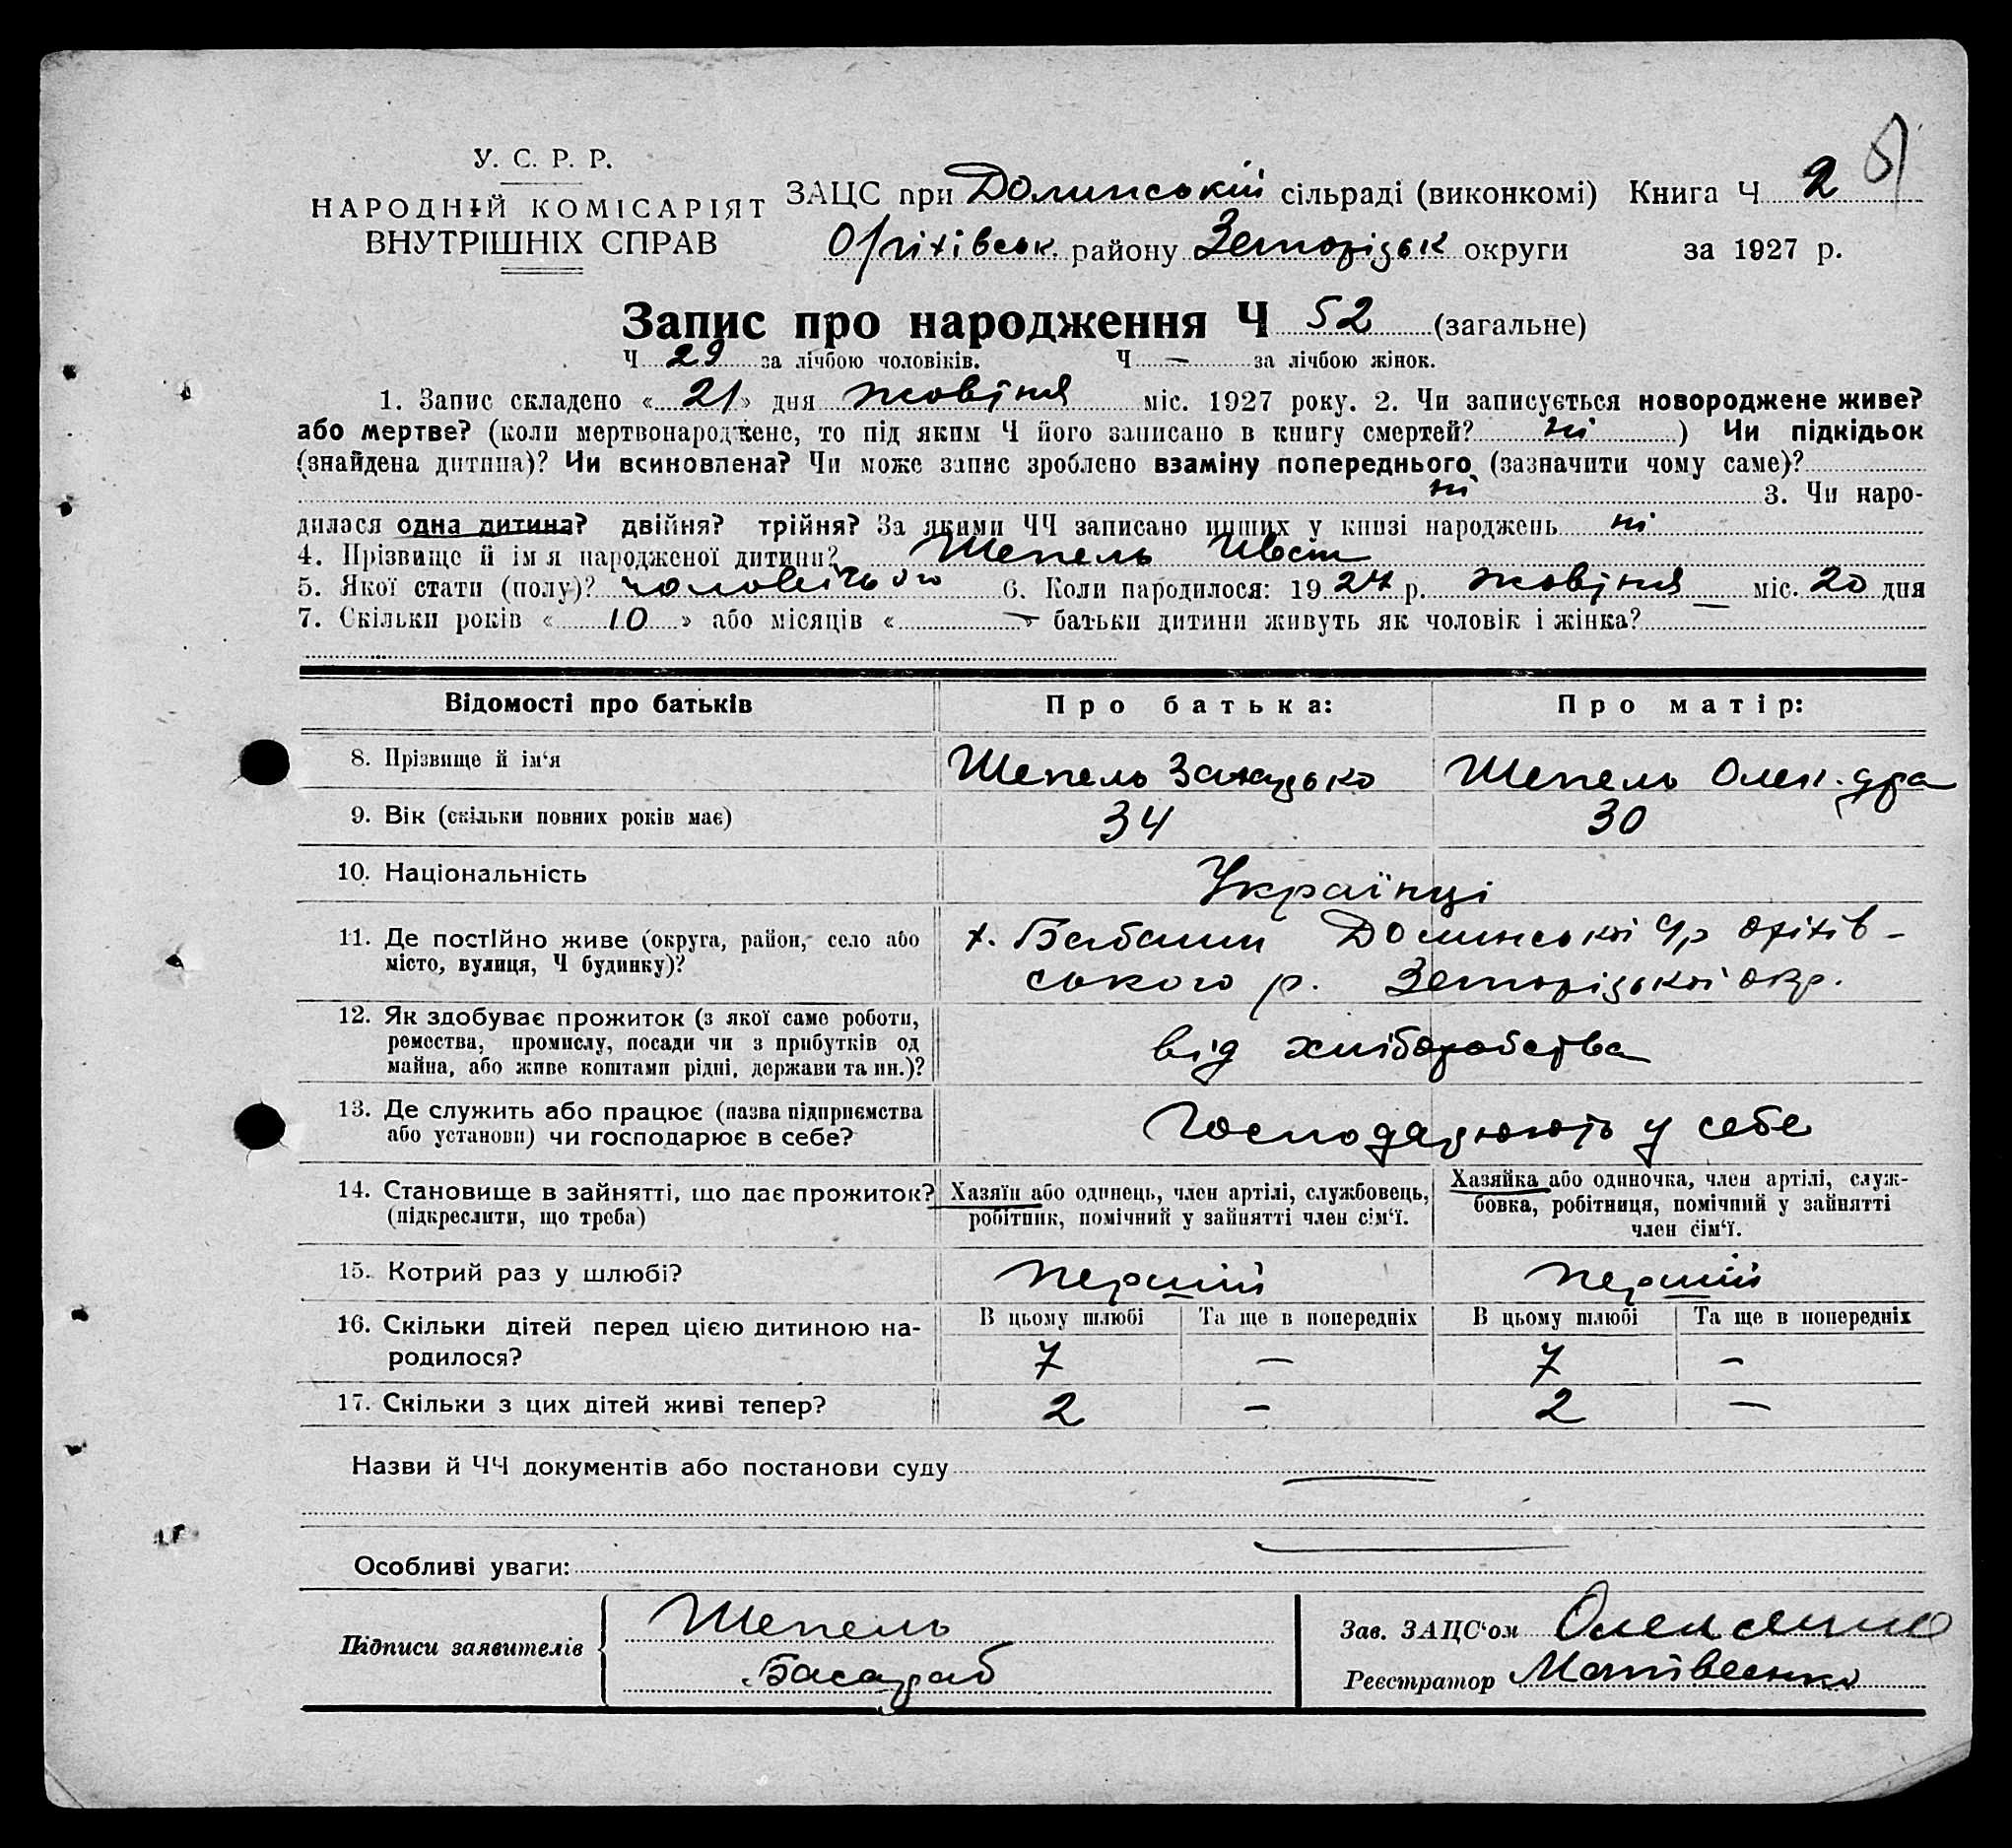 У. С. Р. Р.
НАРОДНІЙ КОМІСАРІЯТ
ВНУТРІШНІХ СПРАВ
ЗАЦС при Долинській сільраді (виконкомі) Книга Ч 2
Оріхівськ. району Запорізьк округи за 1927 р.
Запис про народження Ч 52 (загальне)
Ч 29 за лічбою чоловіків. Ч — за лічбою жінок.
1. Запис складено « 21 » дня жовтня міс. 1927 року. 2. Чи записується новороджене живе?
або мертве? (коли мертвонароджене, то під яким Ч його записано в книгу смертей? ні ) Чи підкідьок
(знайдена дитина)? Чи всиновлена? Чи може запис зроблено взаміну попереднього (зазначити чому саме)?
ні 3. Чи наро-
дилася одна дитина? двійня? трійня? За якими ЧЧ записано инших у книзі народжень ні
4. Прізвище й ім'я народженої дитини? Шепель Иван
5. Якої стати (полу)? чоловічого 6. Коли народилося: 1927 р. жовтня міс. 20 дня
7. Скільки років « 10 » або місяців « — » батьки дитини живуть як чоловік і жінка? —
Відомості про батьків Про батька: Про матір:
8. Прізвище й ім'я Шепель Шепель Олександра
9. Вік (скільки повних років має) 34 30
10. Національність Українці
11. Де постійно живе (округа, район, село або
місто, вулиця, Ч будинку)?
х. Долинської с/р Оріхів-
ського р. Запорізької окр.
12. Як здобуває прожиток (з якої саме роботи,
ремества, промислу, посади чи з прибутків од
майна, або живе коштами рідні, держави та ин.)?
від хліборобства
13. Де служить або працює (назва підприємства
або установи) чи господарює в себе?
Господарюють у себе
14. Становище в зайнятті, що дає прожиток?
(підкреслити, що треба)
Хазяїн або одинець, член артілі, службовець,
робітник, помічний у зайнятті член сім'ї.
Хазяйка або одиночка, член артілі, служ-
бовка, робітниця, помічний у зайнятті
член сім'ї.
15. Котрий раз у шлюбі? перший перший
16. Скільки дітей перед цією дитиною на-
родилося?
В цьому шлюбі Та ще в попередніх В цьому шлюбі Та ще в попередніх
7 — 7 —
17. Скільки з цих дітей живі тепер? 2 — 2 —
Назви й ЧЧ документів або постанови суду —
Особливі уваги: —
Підписи заявителів
Шепель
Басараб
Зав. ЗАЦС'ом
Реєстратор Матвієнко